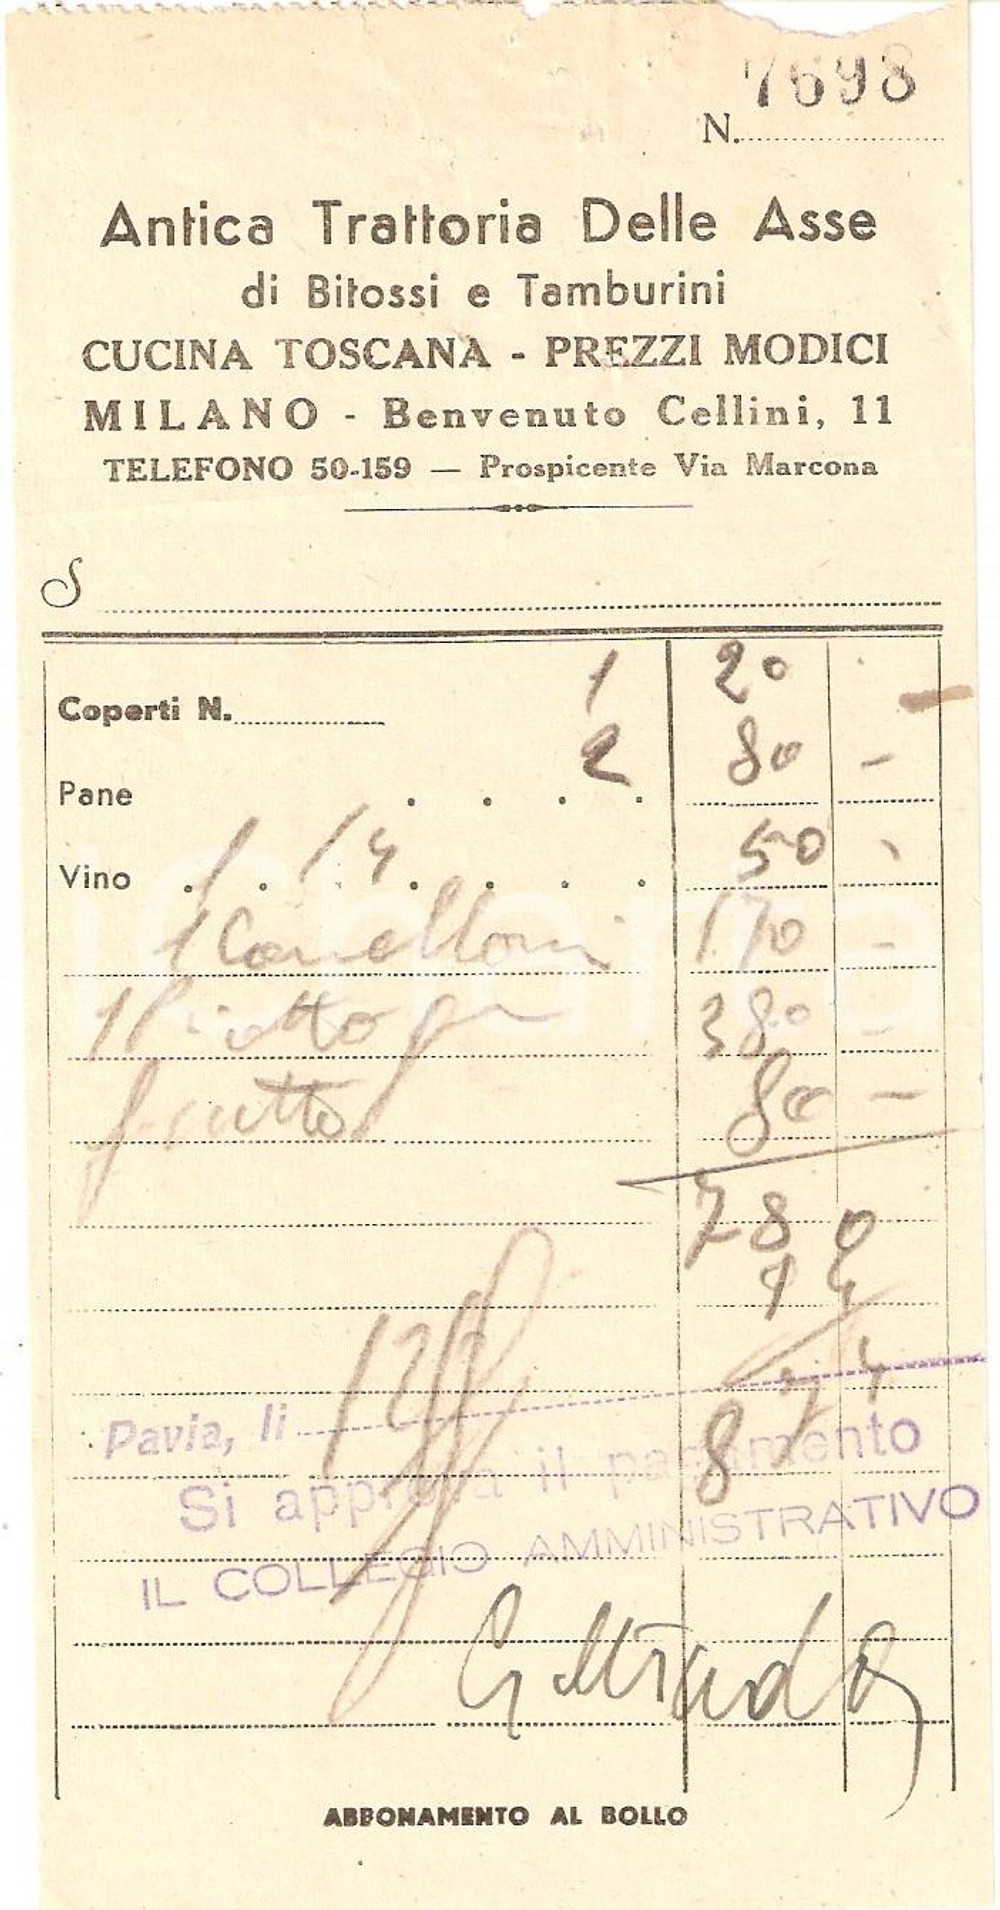 7698
N.
Antica Trattoria Delle Asse
di Bitossi e Tamburini
CUCINA TOSCANA - PREZZI MODICI
MILANO - Benvenuto Cellini, 11
TELEFONO 50-159 — Prospicente Via Marcona
S
Coperti N. 1 20
Pane 2 80 -
Vino 1 1/4 50
1 Canelloni 170 -
1 Piatto 380 -
frutto 80 -
780
94
8 74
Pavia, li
Si approva il pagamento
IL COLLEGIO AMMINISTRATIVO
ABBONAMENTO AL BOLLO